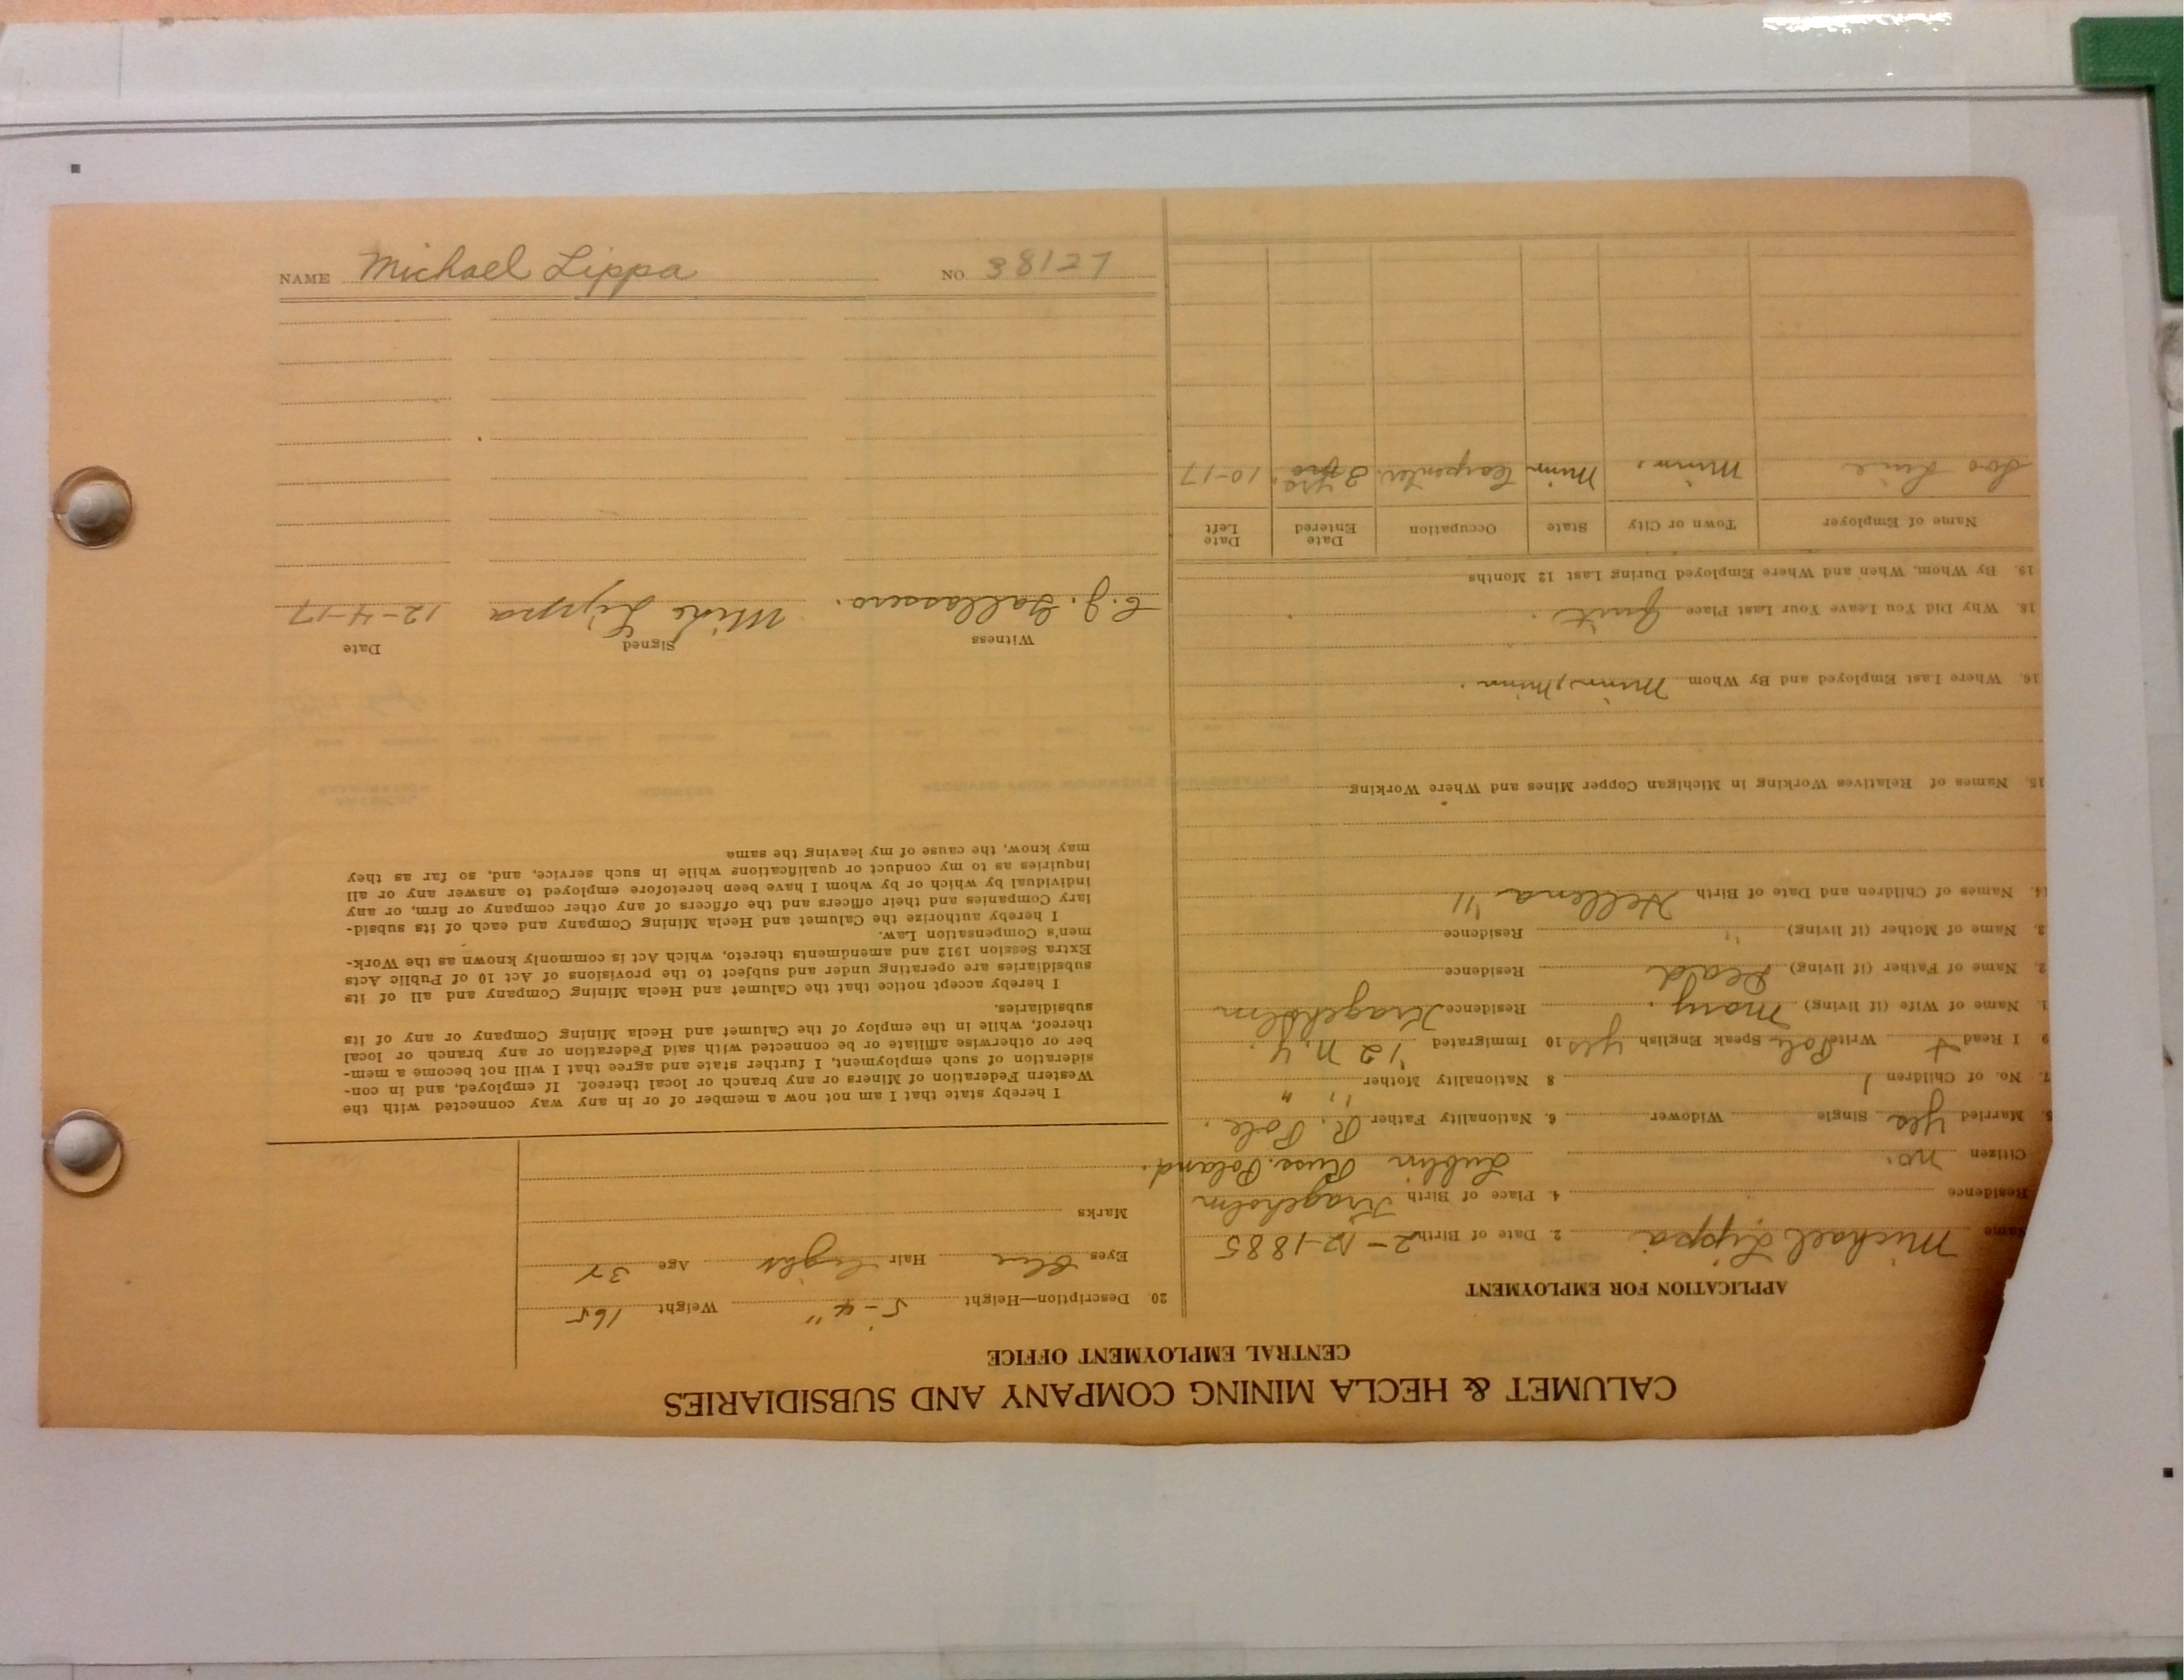 CALUMET & HECLA MINING COMPANY AND SUBSIDIARIES
CENTRAL EMPLOYMENT OFFICE
APPLICATION FOR EMPLOYMENT
Name Michael Lippa 2. Date of Birth 2-12-1885
Residence 4. Place of Birth
Citizen no. Lublin Russ. Poland.
5. Married yes Single Widower 6. Nationality Father R. Pole.
7. No. of Children 1 8 Nationality Mother " "
9 I Read + Write Pole Speak English yes 10 Immigrated '12 N.Y.
1. Name of Wife (if living) Mary. Residence
2. Name of Father (if living) Dead Residence
3. Name of Mother (if living) " Residence
14. Names of Children and Date of Birth Hellena '11
15. Names of Relatives Working in Michigan Copper Mines and Where Working
16. Where Last Employed and By Whom Minn, Minn.
18. Why Did You Leave Your Last Place Quit.
19. By Whom, When and Where Employed During Last 12 Months
Name of Employer Town or City State Occupation Date Entered Date Left
Soo Line Minn. Minn Carpenter. yrs. 10-17
20. Description—Height 5-4" Weight 165
Eyes Blue Hair Light Age 32
Marks
I hereby state that I am not now a member of or in any way connected with the
Western Federation of Miners or any branch or local thereof. If employed, and in con-
sideration of such employment, I further state and agree that I will not become a mem-
ber or otherwise affiliate or be connected with said Federation or any branch or local
thereof, while in the employ of the Calumet and Hecla Mining Company or any of its
subsidiaries.
I hereby accept notice that the Calumet and Hecla Mining Company and all of its
subsidiaries are operating under and subject to the provisions of Act 10 of Public Acts
Extra Session 1912 and amendments thereto, which Act is commonly known as the Work-
men's Compensation Law.
I hereby authorize the Calumet and Hecla Mining Company and each of its subsid-
iary Companies and their officers and the officers of any other company or firm, or any
individual by which or by whom I have been heretofore employed to answer any or all
inquiries as to my conduct or qualifications while in such service, and, so far as they
may know, the cause of my leaving the same
Witness Signed Date
C.J. Gallassero. Mike Lippa 12-4-17
NAME Michael Lippa NO. 38127